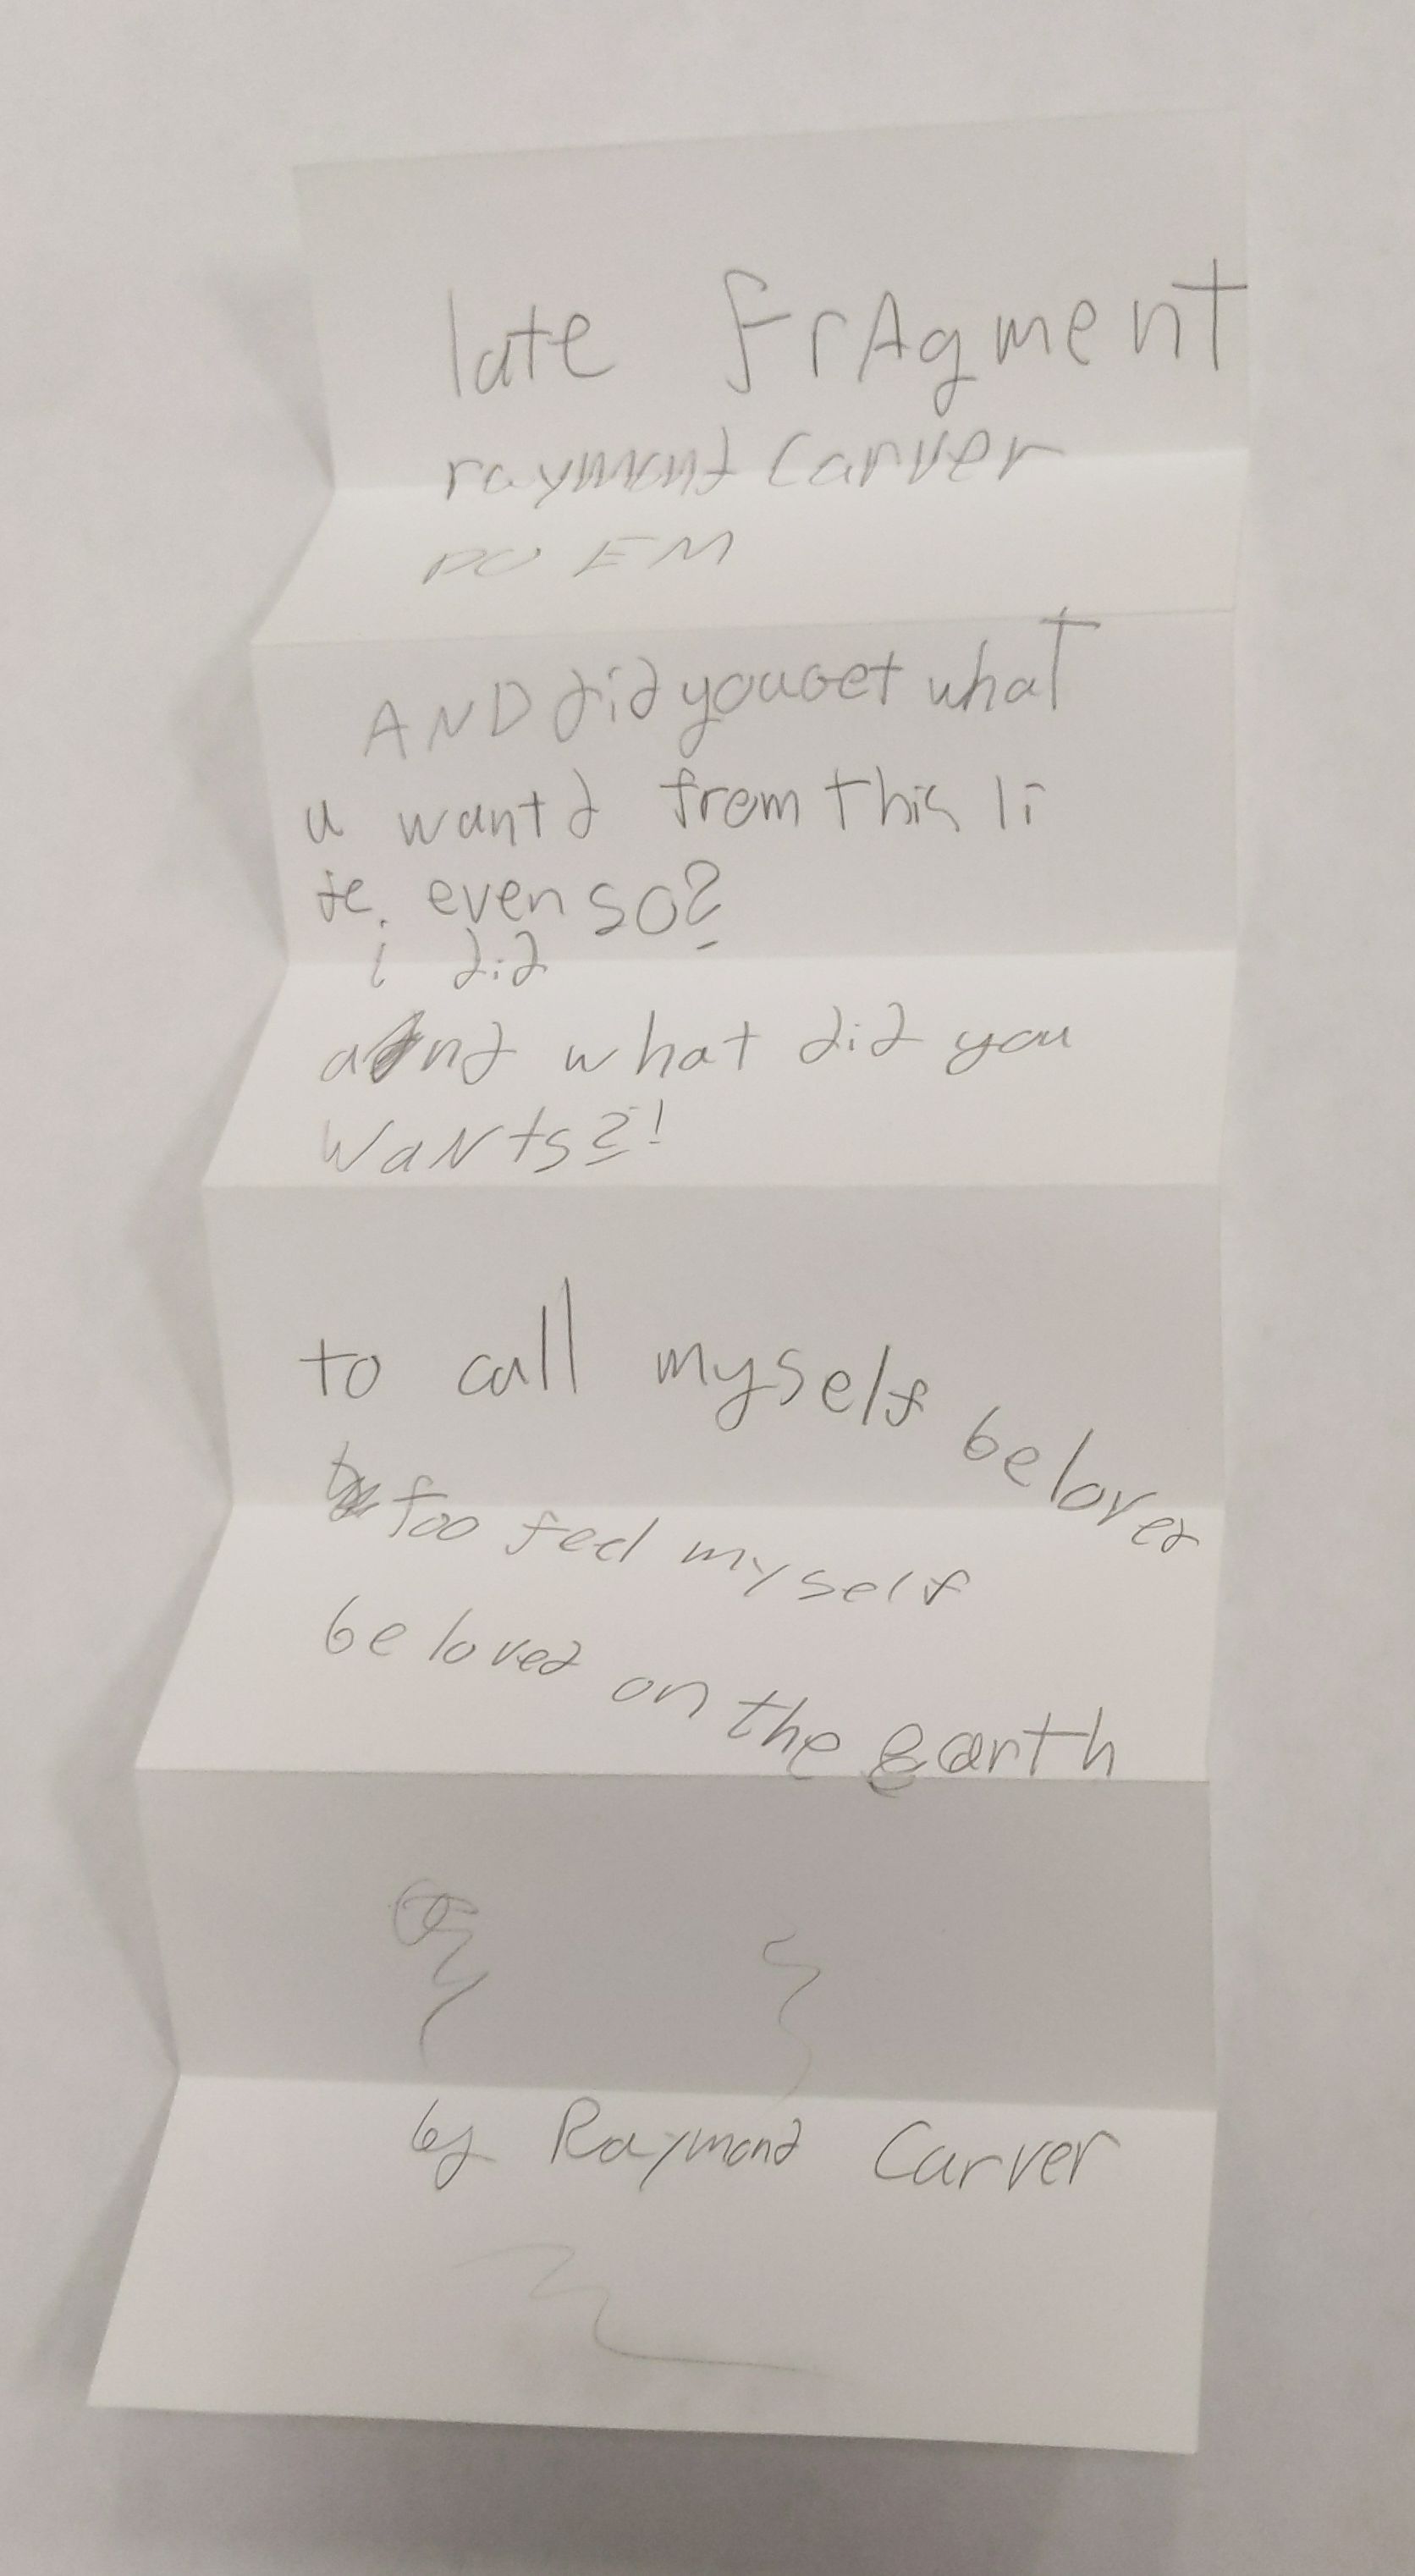 late frAgment
raymond Carver
PO EM
AND did you get what
u wantd from this li
fe. even so?
i did
and what did you
WaNts?!
to call myself beloved
too feel myself
beloved on the earth
by Raymond Carver